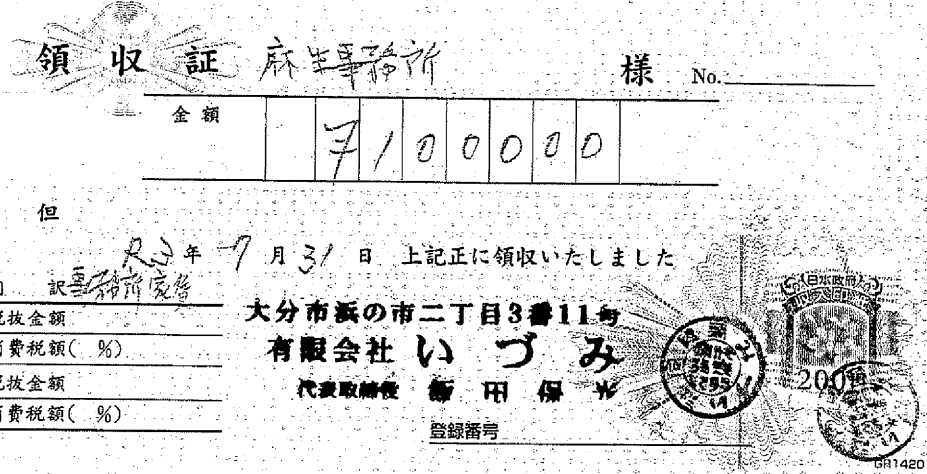 領収証 麻生事務所 様 No.
金額 7100000
但
R3年 7月31日 上記正に領収いたしました
訳 事務所家賃
税抜金額
消費税額( %)
税抜金額
消費税額( %)
大分市浜の市二丁目3番11号
有限会社 いづみ
代表取締役 飯田保
登録番号
日本政府
200円
GR1420